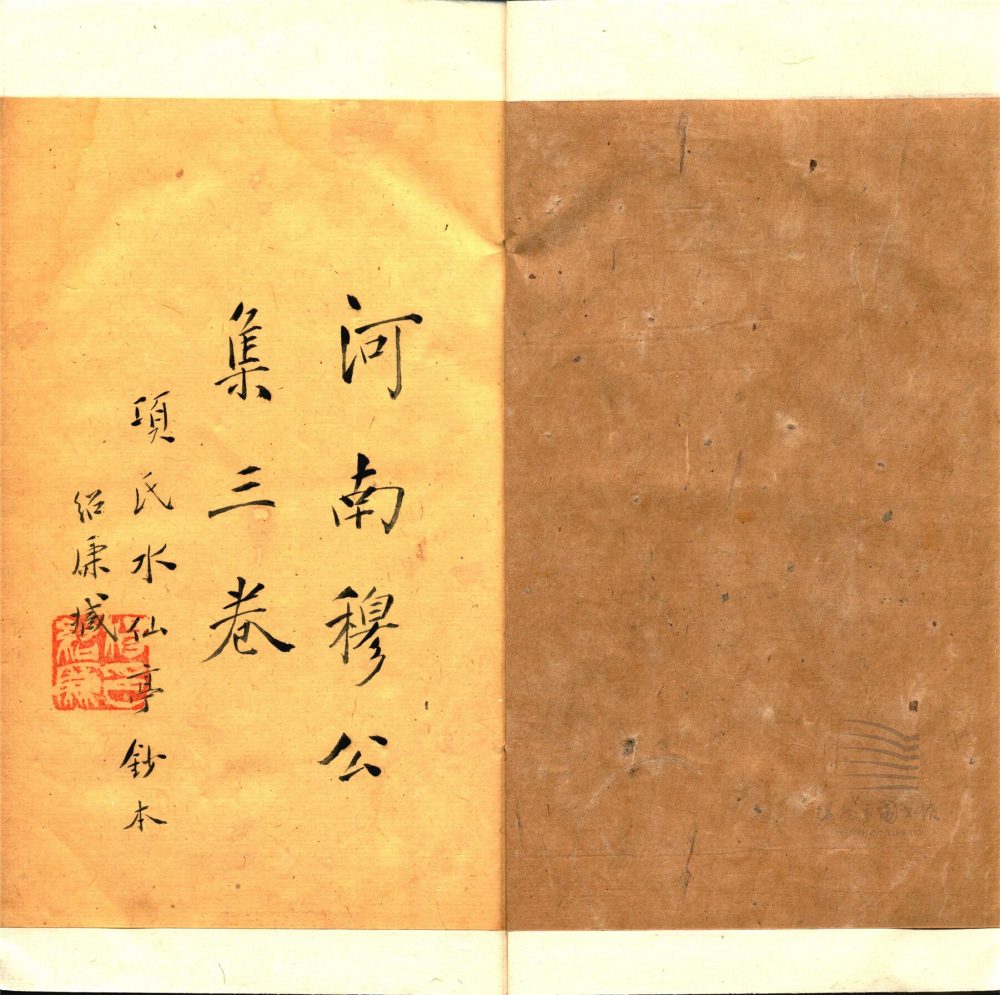 河南穆公
集三卷
項氏水仙亭鈔本
紹廉